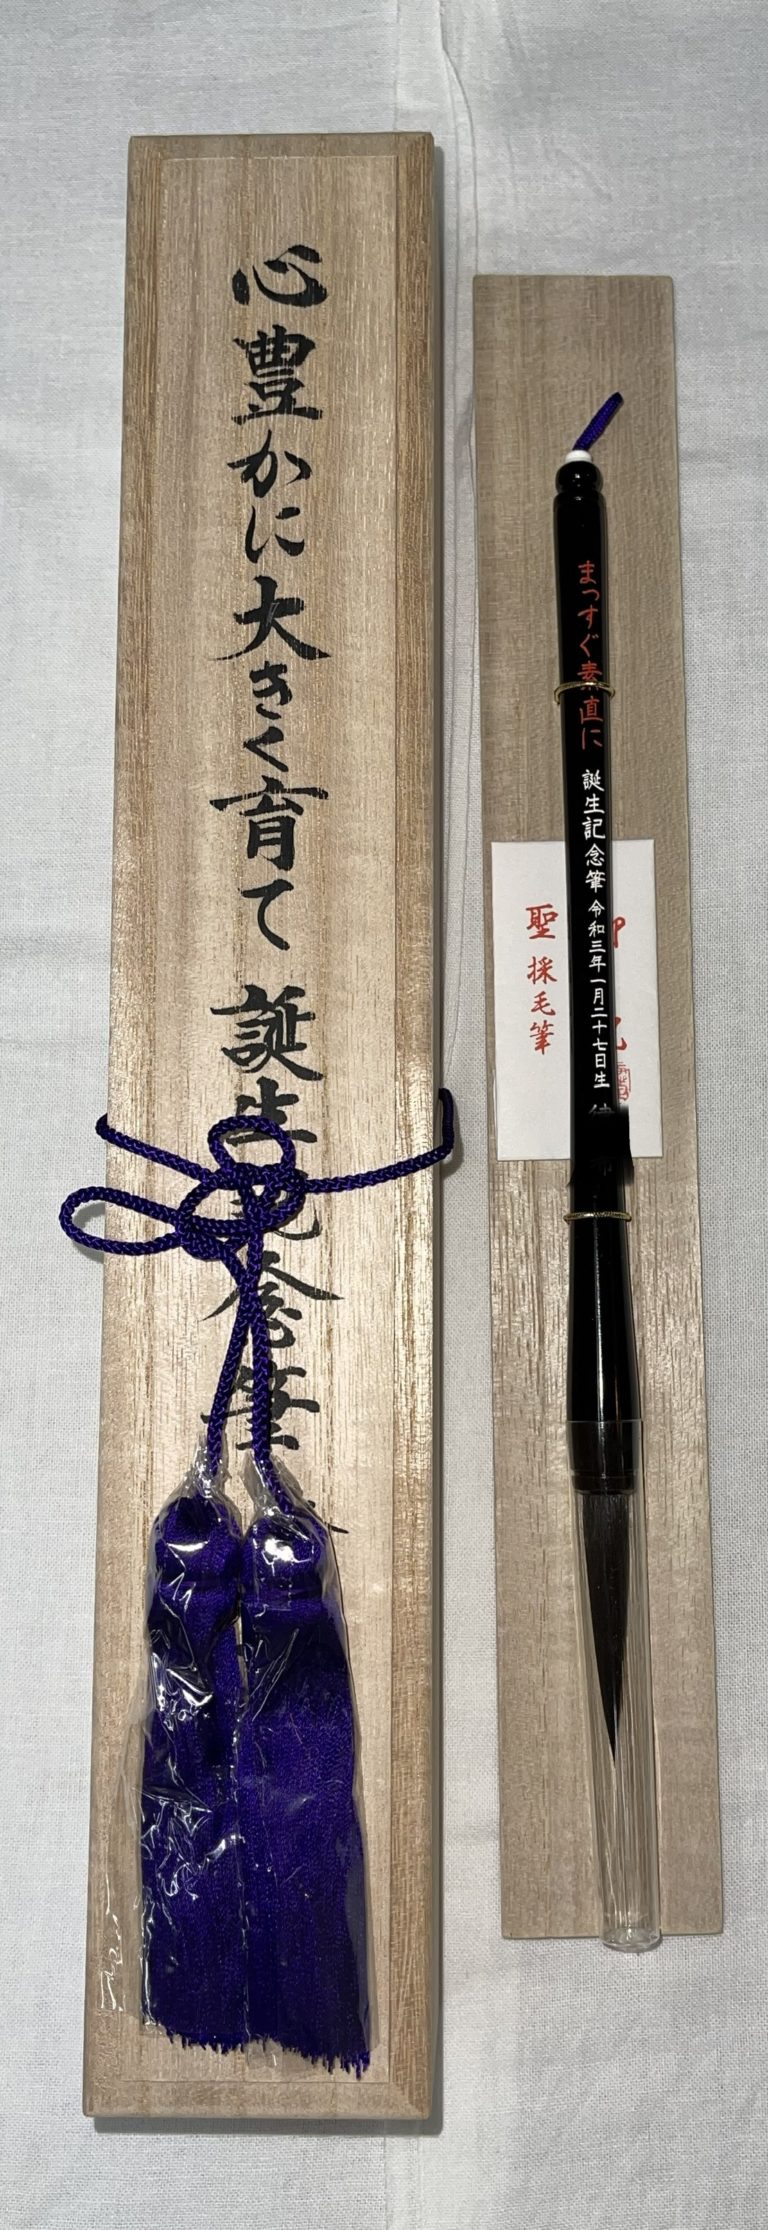 心豊かに大きく育て 誕生記念筆
まっすぐ素直に 誕生記念筆 令和三年一月二十七日生
聖 採毛筆